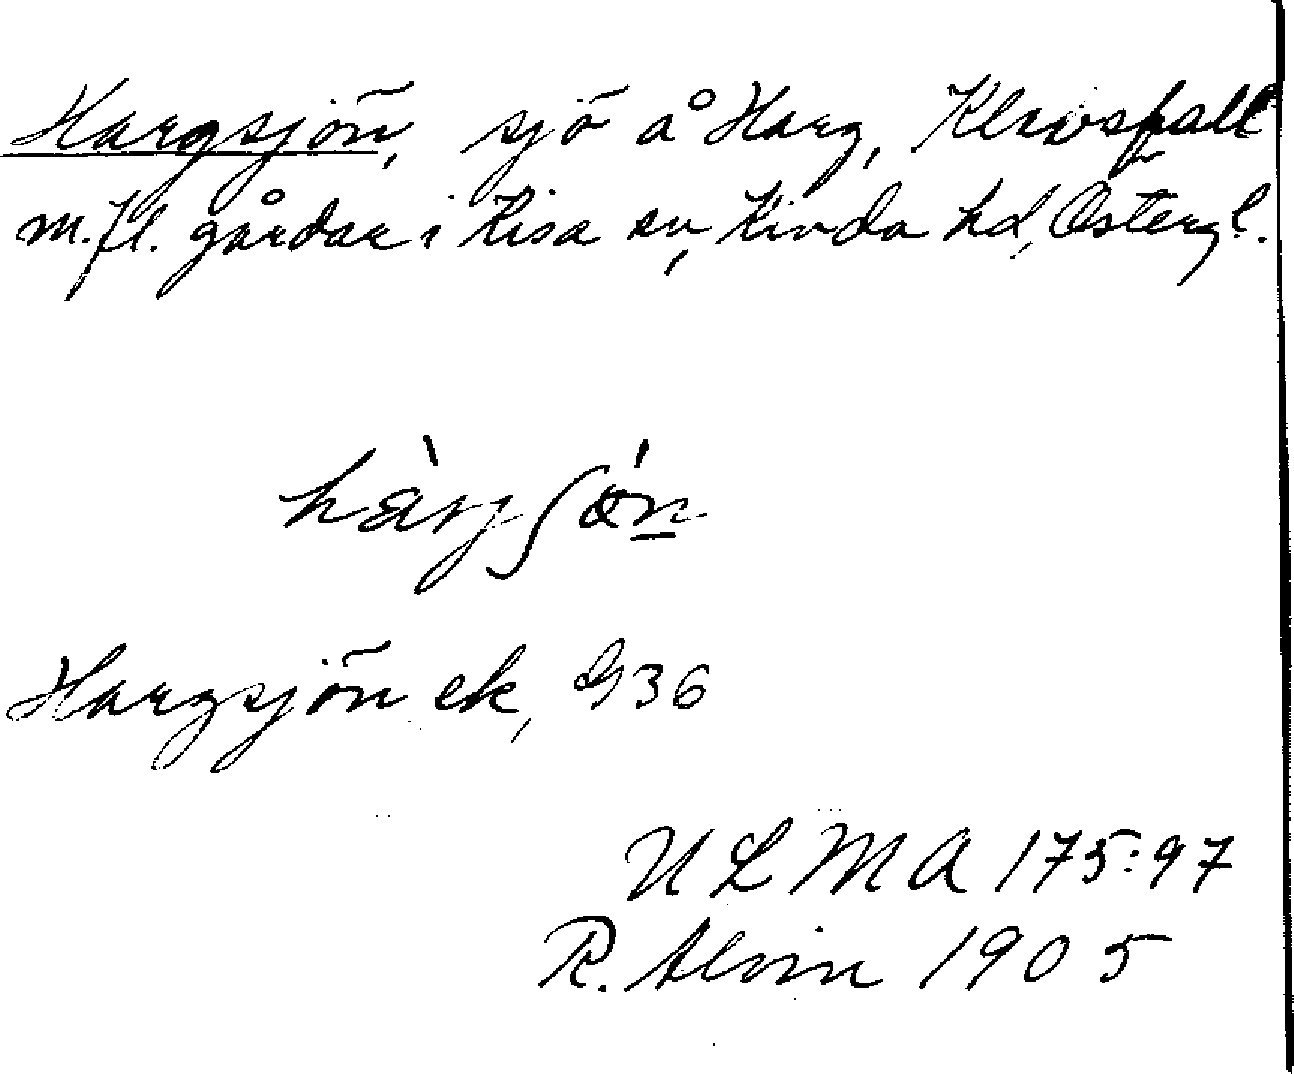 Hargsjön, sjö å Harg, Klevsfall
m.fl. gårdar i Kisa sn, Kinda hd, Östergl.
hàrjʃón
Hargsjön ek, G36
ULMA 175:97
R. Alvin 1905